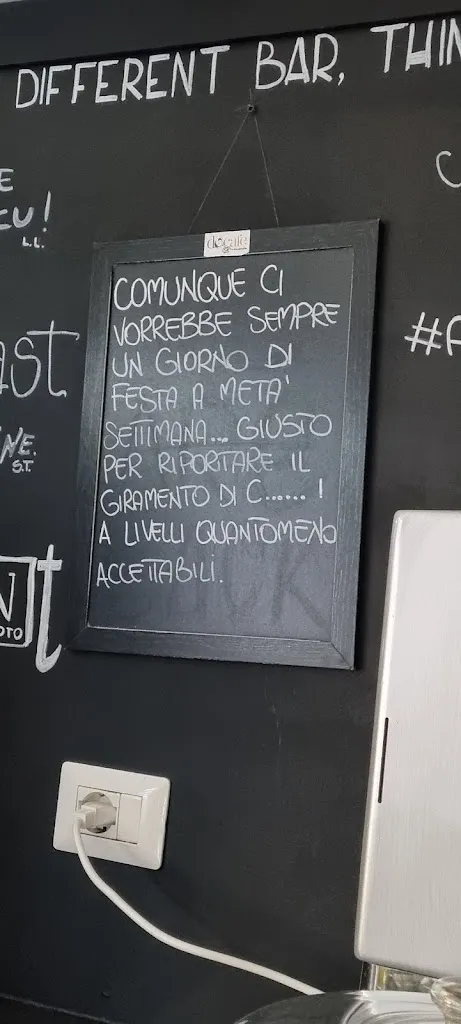 DIFFERENT BAR,
COMUNQUE CI
VORREBBE SEMPRE
UN GIORNO DI
FESTA A META'
SETTIMANA... GIUSTO
PER RIPORTARE IL
GIRAMENTO DI C...... !
A LIVELLI QUANTOMENO
ACCETTABILI.
L.L.
S.T.